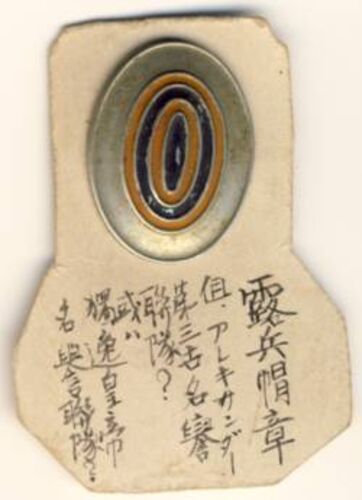 露兵帽章
但、アレキサンダー
第三古名誉
聯隊？
或ハ
獨逸皇帝
名誉聯隊？